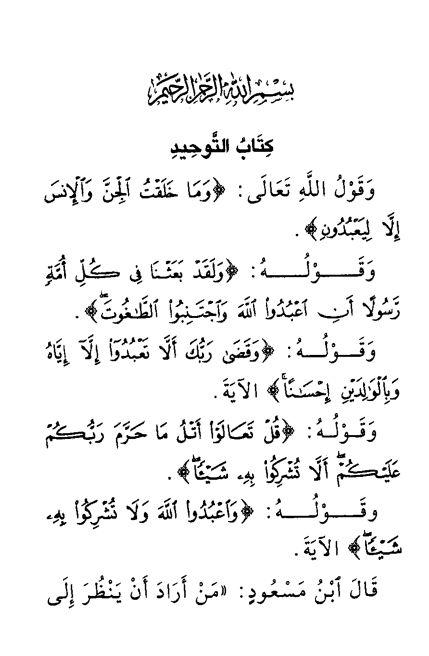 بِسْمِ اللَّهِ الرَّحْمَنِ الرَّحِيمِ
كِتَابُ التَّوحِيدِ
وَقَوْلُ اللَّهِ تَعَالَى: ﴿وَمَا خَلَقْتُ ٱلْجِنَّ وَٱلْإِنسَ
إِلَّا لِيَعْبُدُونِ﴾.
وَقَـــوْلُـــــهُ: ﴿وَلَقَدْ بَعَثْنَا فِى كُلِّ أُمَّةٍ
رَّسُولًا أَنِ ٱعْبُدُوا۟ ٱللَّهَ وَٱجْتَنِبُوا۟ ٱلطَّٰغُوتَۖ﴾.
وَقَــوْلُــهُ: ﴿وَقَضَىٰ رَبُّكَ أَلَّا تَعْبُدُوٓا۟ إِلَّآ إِيَّاهُ
وَبِٱلْوَٰلِدَيْنِ إِحْسَٰنًاۚ﴾ الآيَةَ.
وَقَـوْلُـهُ: ﴿قُلْ تَعَالَوْا۟ أَتْلُ مَا حَرَّمَ رَبُّكُمْ
عَلَيْكُمْۖ أَلَّا تُشْرِكُوا۟ بِهِۦ شَيْـًٔاۖ﴾.
وقَــــوْلُــــــهُ: ﴿وَٱعْبُدُوا۟ ٱللَّهَ وَلَا تُشْرِكُوا۟ بِهِۦ
شَيْـًٔاۖ﴾ الآيَةَ.
قَالَ ٱبْنُ مَسْعُودٍ: «مَنْ أَرَادَ أَنْ يَنْظُرَ إِلَى